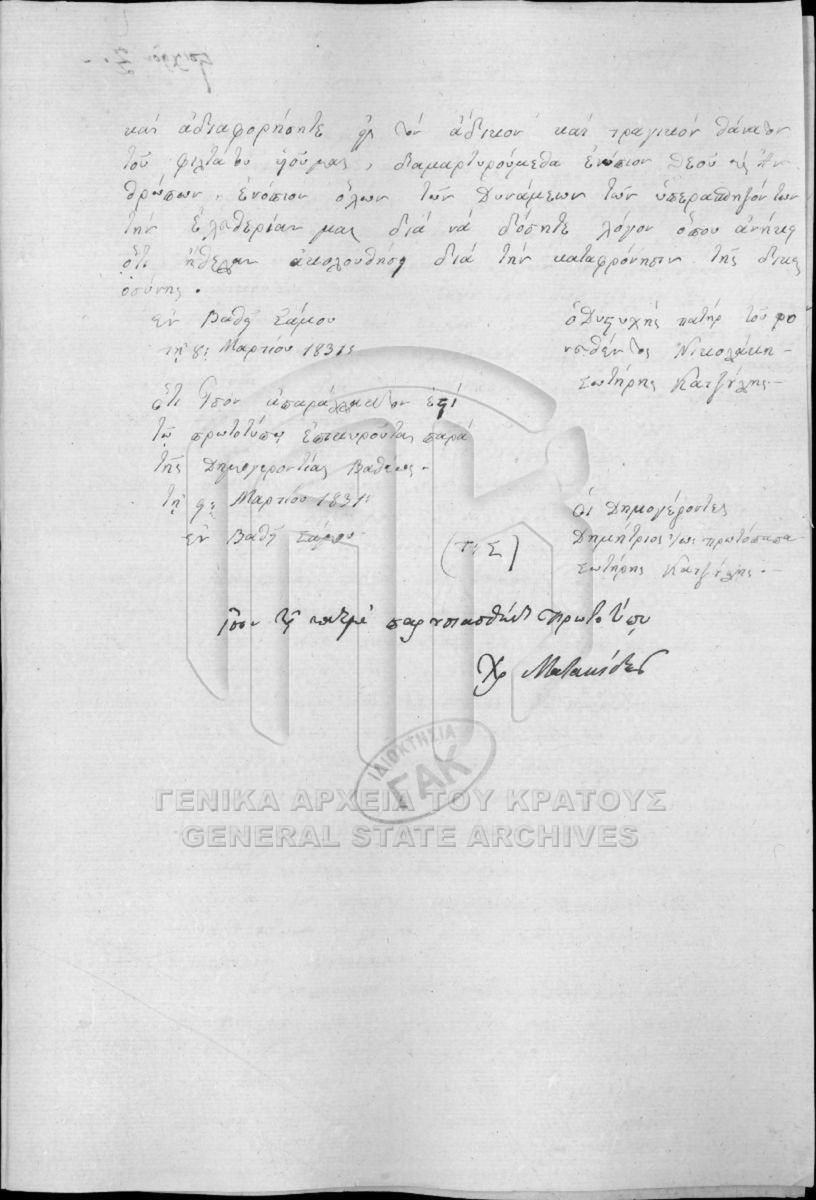 καὶ ἀδιαφορήσητε εἰς τὸν ἄδικον καὶ τραγικὸν θάνατον
τοῦ φιλτάτου ὑιοῦ μας, διαμαρτυρούμεθα ἐνόπιον Θεοῦ καὶ Ἀν
θρώπων, ἐνόπιον ὅλων τῶν Δυνάμεων τῶν ὑπερασπιζόντων
τὴν ἐλευθερίαν μας διὰ νὰ δόσητε λόγον ὅπου ἀνήκει
ὅτι ἤθελεν ἀκολουθήσῃ διὰ τὴν καταφρόνησιν τῆς δικαι
οσύνης.
ἐν Βαθεῖ Σάμου
τῇ 8: Μαρτίου 1831:
ὁ Δυστυχὴς πατὴρ τοῦ φο
νευθέντος Νικολάκη
Σωτήρης Κατζίλης
ὅτι ἴσον ἀπαράλλακτον ἐστί
τῷ πρωτοτύπῳ ἐπικυροῦται παρὰ
τῆς Δημογεροντίας Βαθέως.
τῇ 9: Μαρτίου 1831:
ἐν Βαθεῖ Σάμου
(Τ: Σ)
Οἱ Δημογέροντες
Δημήτριος πρωτόπαπα
Σωτήρης Κατζίλης.
ἴσον τῷ παρουσιασθέντι πρωτοτύπῳ
ΙΔΙΟΚΤΗΣΙΑ
ΓΑΚ
ΓΕΝΙΚΑ ΑΡΧΕΙΑ ΤΟΥ ΚΡΑΤΟΥΣ
GENERAL STATE ARCHIVES